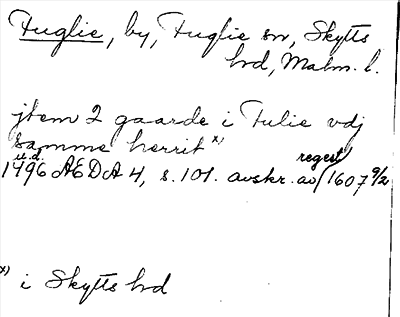 Fuglie, by, Fuglie sn, Skytts
hrd, Malm. l.
jtem 2 gaarde i Fulie vdj
samme herrit x)
u.d. regest
1496 AEDA 4, s. 101. avskr. av 1607 9/2
x) i Skytts hrd